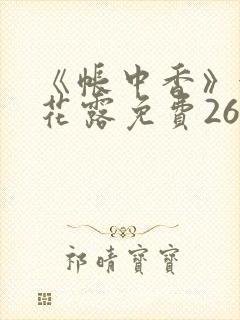 《帐中香》
花露免費26
祁晴寶寶